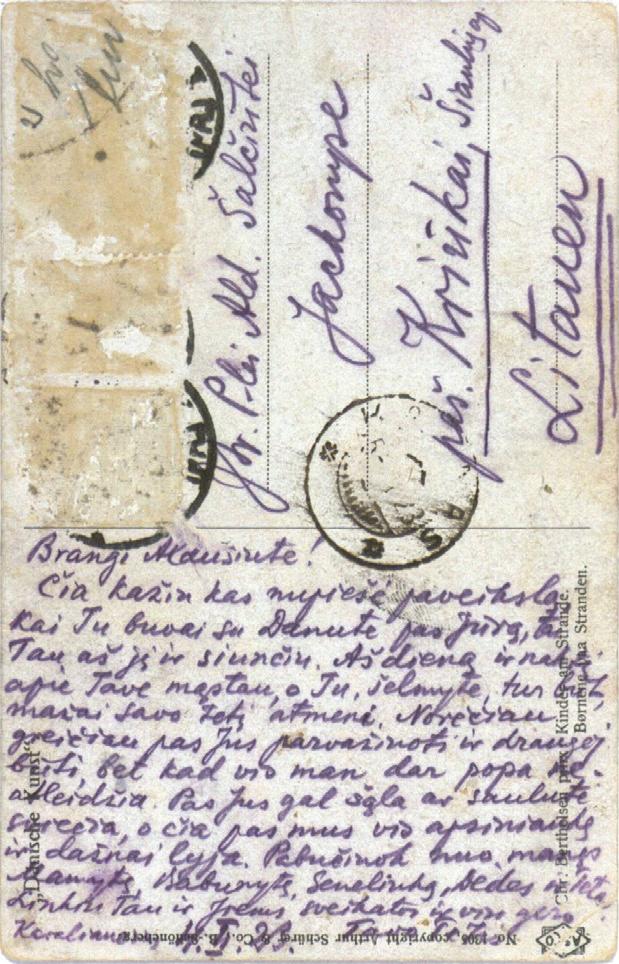 Jor. Plei Ald. Šalčiutei
Jackonyse
paš. Kriukai, Šiaulių ap.
Litauen
Brangi Aldušiute!
Čia kažin kas nupiešė paveikslą
kai Tu buvai su Danute pas jūrą,
Tau aš jį ir siunčiu. Aš dieną ir
apie Tave mąstau, o Tu, šelmyte, tur būt,
mažai savo tetį atmeni. Norėčiau
greičiau pas Jus parvažinoti ir draugėj
būti, bet kad vis man dar popa
neleidžia. Pas Jus gal šąla ar saulutė
šviečia, o čia pas mus vis apsiniaukę
ir dažnai lyja. Pabučiuok nuo manęs
Mamytę, Babunytę, Senelinką, Dėdes ir
Linkiu Tau ir Jiems sveikatos ir viso gero.
"Dänische Kunst"
Chr. Bertholsen pinx. Kinder am Strande.
Børnene paa Stranden.
No 1305 copyright Arthur Schürer & Co., B.-Schöneberg